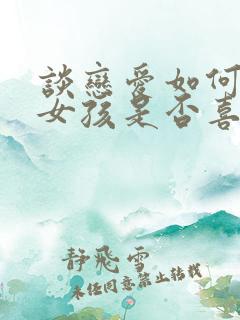 談戀愛如何
女孩是否喜
靜飛雪
未經同意禁止轉載